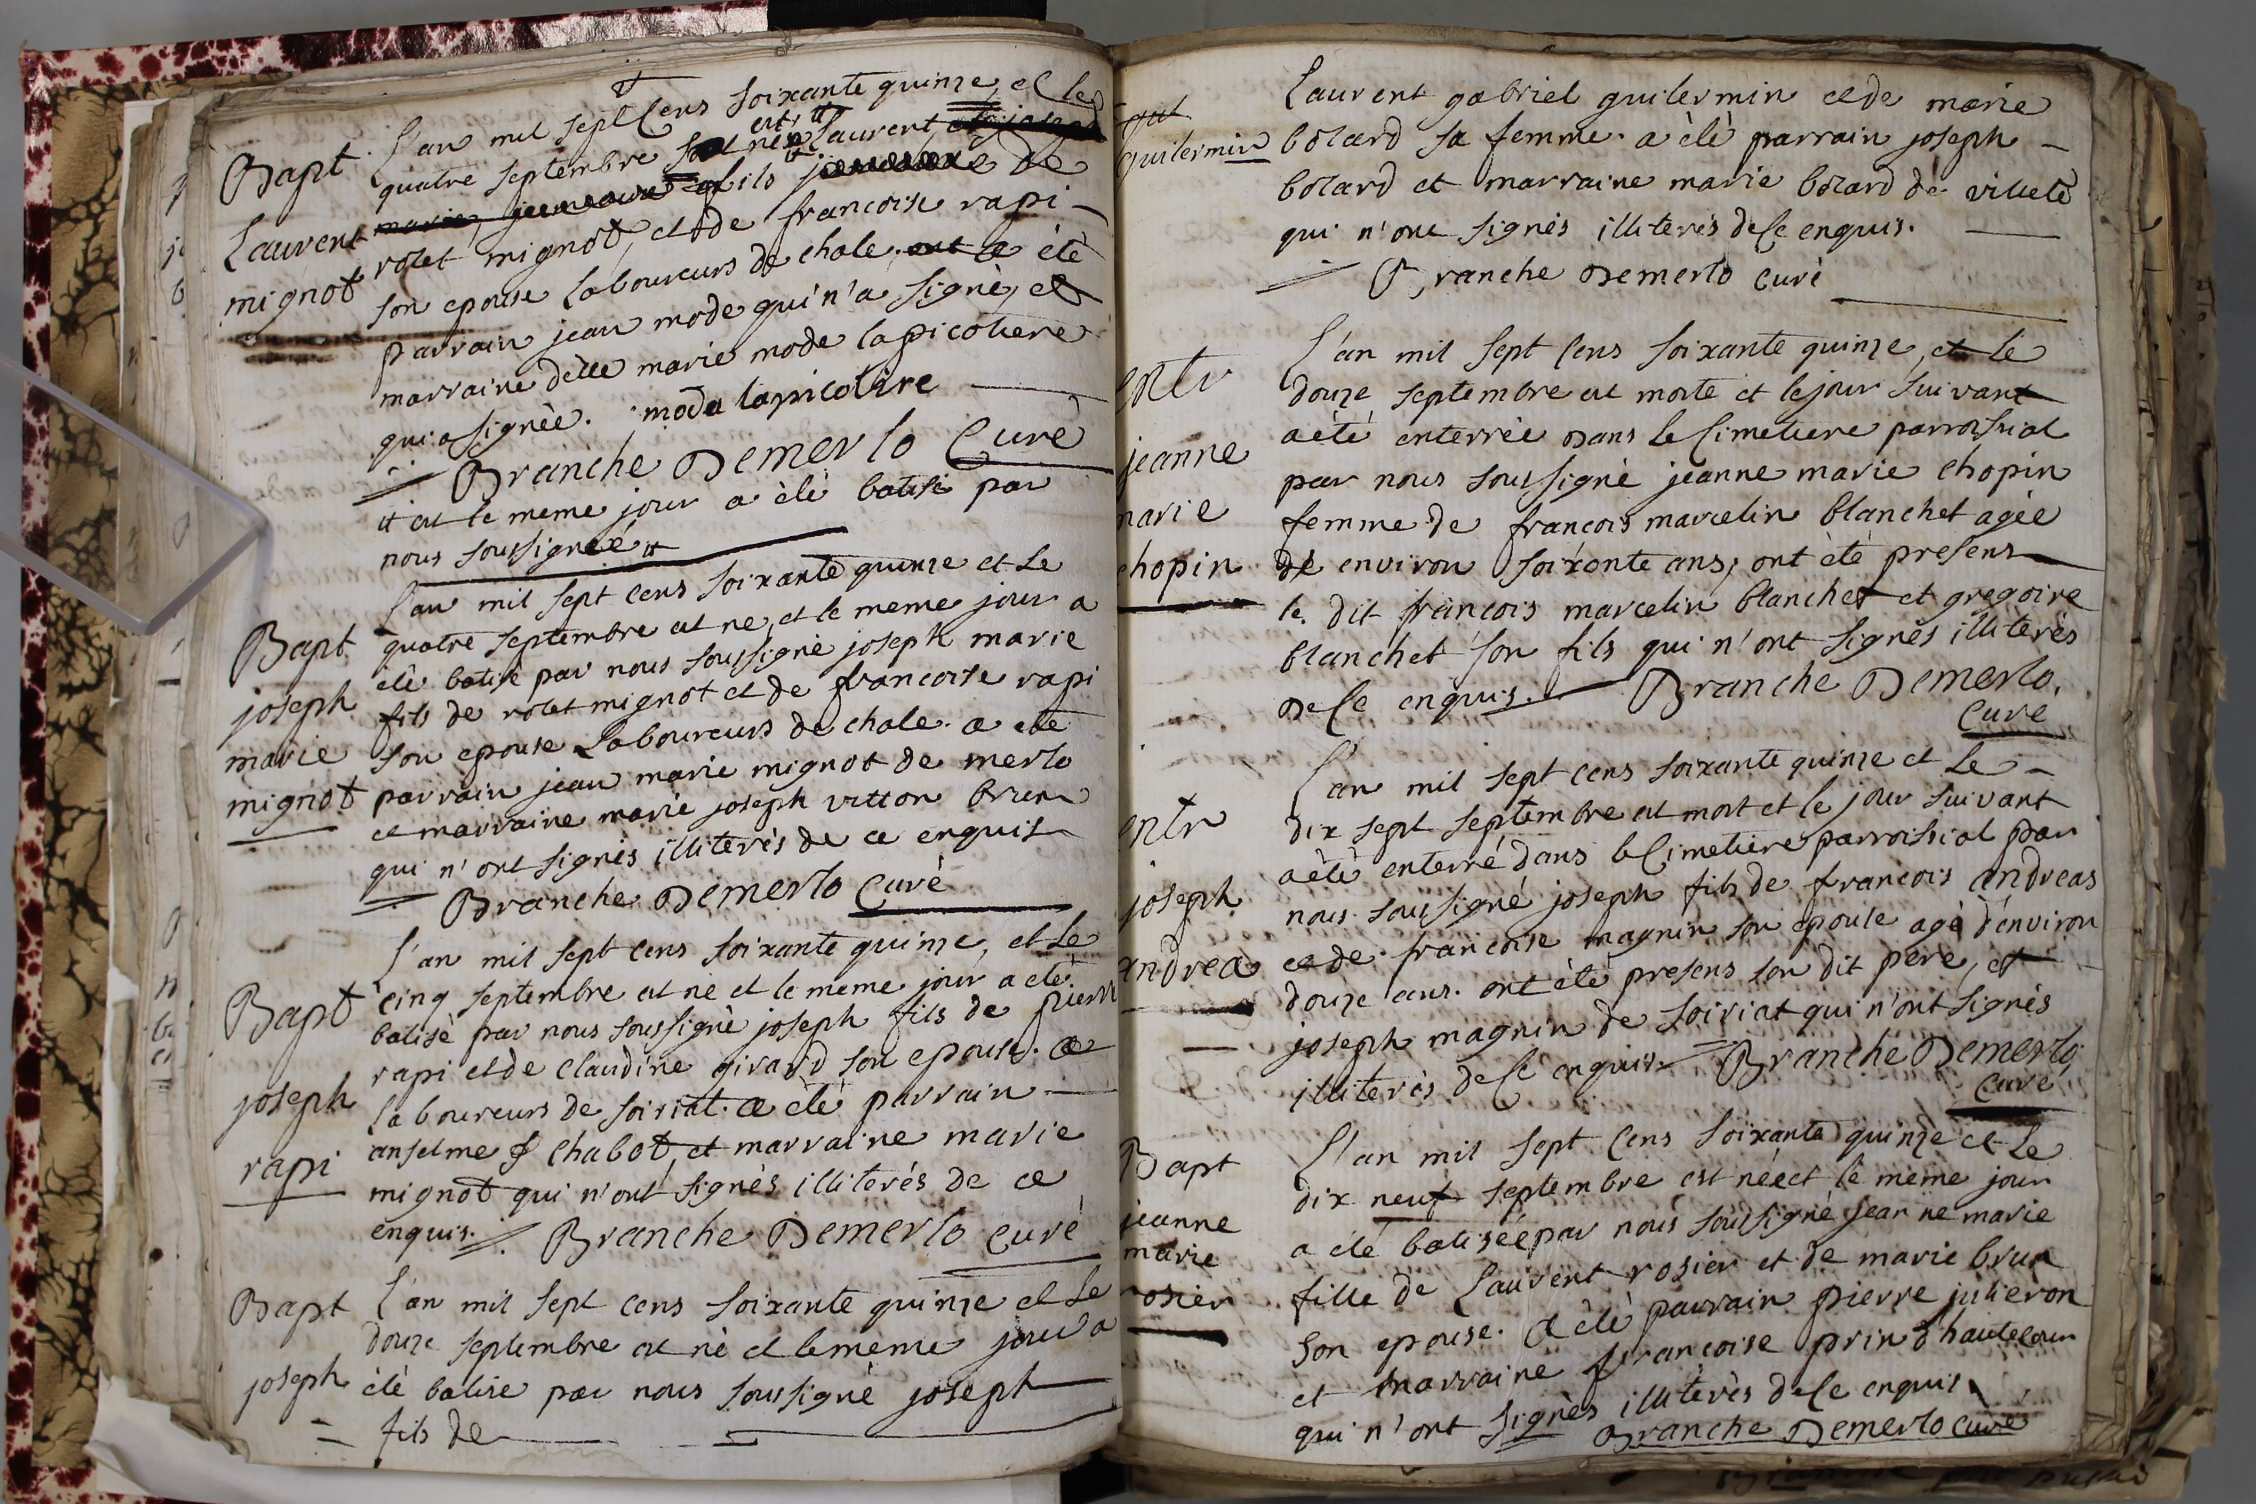 Bapt
Laurent
mignot
L'an mil sept Cens soixante quinze, et le
quatre septembre est né Laurent
fils de
rolet mignot, et de francoise rapi
son epouse Laboureurs de chole. a été
parrain jean mode qui n'a signé, et
marraine delle marie mode lapicotiere
qui a signéè. moda lapicotire
Branche Demerlo Curé
# et le meme jour a èlè batisé par
nous soussigneé #
Bapt
joseph
marie
mignot
L'an mil sept cens soixante quinze et le
quatre septembre est ne, et le meme jour a
etè batisè par nous soussigné joseph marie
fils de rolet mignot et de francoise rapi
son epouse Laboureurs de chole. a etè
parrain jean marie mignot de merlo
et marraine marie joseph vitton brun
qui n'ont signès illiterés de ce enquis
Branche Demerlo Curè
Bapt
joseph
rapi
L'an mil sept cens soixante quinze, et Le
cinq septembre est né et le meme jour a etè
batisè par nous soussignè joseph fils de pierre
rapi et de Claudine girard son epouse. a
laboureurs de soiriat. a ètè parrain
anselme chabot, et marraine marie
mignot qui n'ont signès illiterés de ce
enquis. Branche Demerlo Curé
Bapt
joseph
L'an mil sept cens soixante quinze et Le
douze septembre est nè et le meme jour a
ètè batise par nous soussigné joseph
fils de
guilermin
Laurent gabriel guilermin et de marie
bolard sa femme. a èlè parrain joseph
bolard et marraine marie bolard de villete
qui n'ont signés illiterès de Ce enquis.
Branche Demerlo Curè
entr
jeanne
marie
chopin
L'an mil sept Cens soixante quinze, et le
douze septembre est morte et le jour suivant
a èté enterrée dans le Cimetiere parroissial
par nous soussigné jeanne marie chopin
femme de francois marcelin blanchet agée
de environ soixante ans, ont ètè presens
le dit francois marcelin blanchet et gregoire
blanchet son fils qui n'ont signès illiterès
de Ce enquis. Branche Demerlo.
Cure
entr
joseph
andrea
L'an mil sept cens soixante quinze et Le
dix sept septembre est mort et le jour suivant
a ètè enterré dans le Cimetiere parroissial par
nous soussigné joseph fils de francois andreas
et de francoise magnin son epouse agè d'environ
douze ans. ont ètè presens son dit pere, et
joseph magnin de soiriat qui n'ont signés
illiterès de Ce enquis Branche Demerlo
Cure
Bapt
jeanne
marie
rosier
L'an mil sept Cens soixante quinze et Le
dix neuf septembre est néé et le meme jour
a èté batiséé par nous soussigné jeanne marie
fille de Laurent rosier et de marie brun
son epouse. a ètè parrain pierre julieron
et marraine francoise prin d'hautecour
qui n'ont signès illiterès de Ce enquis
Branche Demerlo Cure